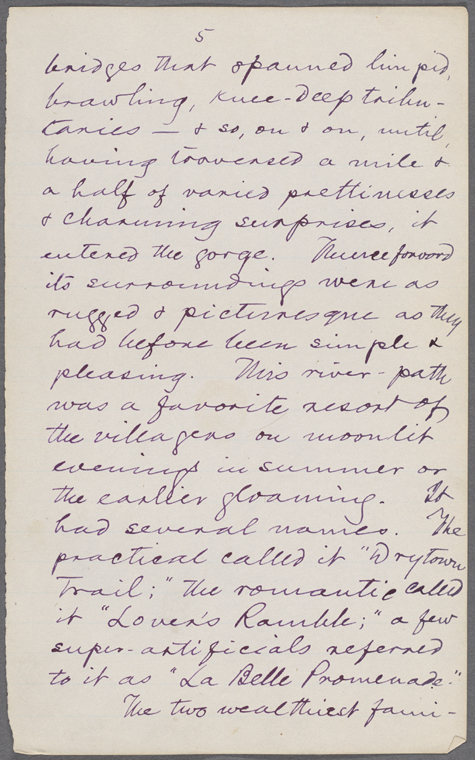 5
bridges that spanned limpid,
brawling, knee-deep tribu-
taries — & so, on & on, until,
having traversed a mile &
a half of varied prettinesses
& charming surprises, it
entered the gorge. Thenceforward
its surroundings were as
rugged & picturesque as they
had before been simple &
pleasing. This river-path
was a favorite resort of
the villagers on moonlit
evenings in summer or
the earlier gloaming. It
had several names. The
practical called it "Drytown
Trail;" the romantic called
it "Lover's Ramble;" a few
super-artificials referred
to it as "La Belle Promenade."
The two wealthiest fami-